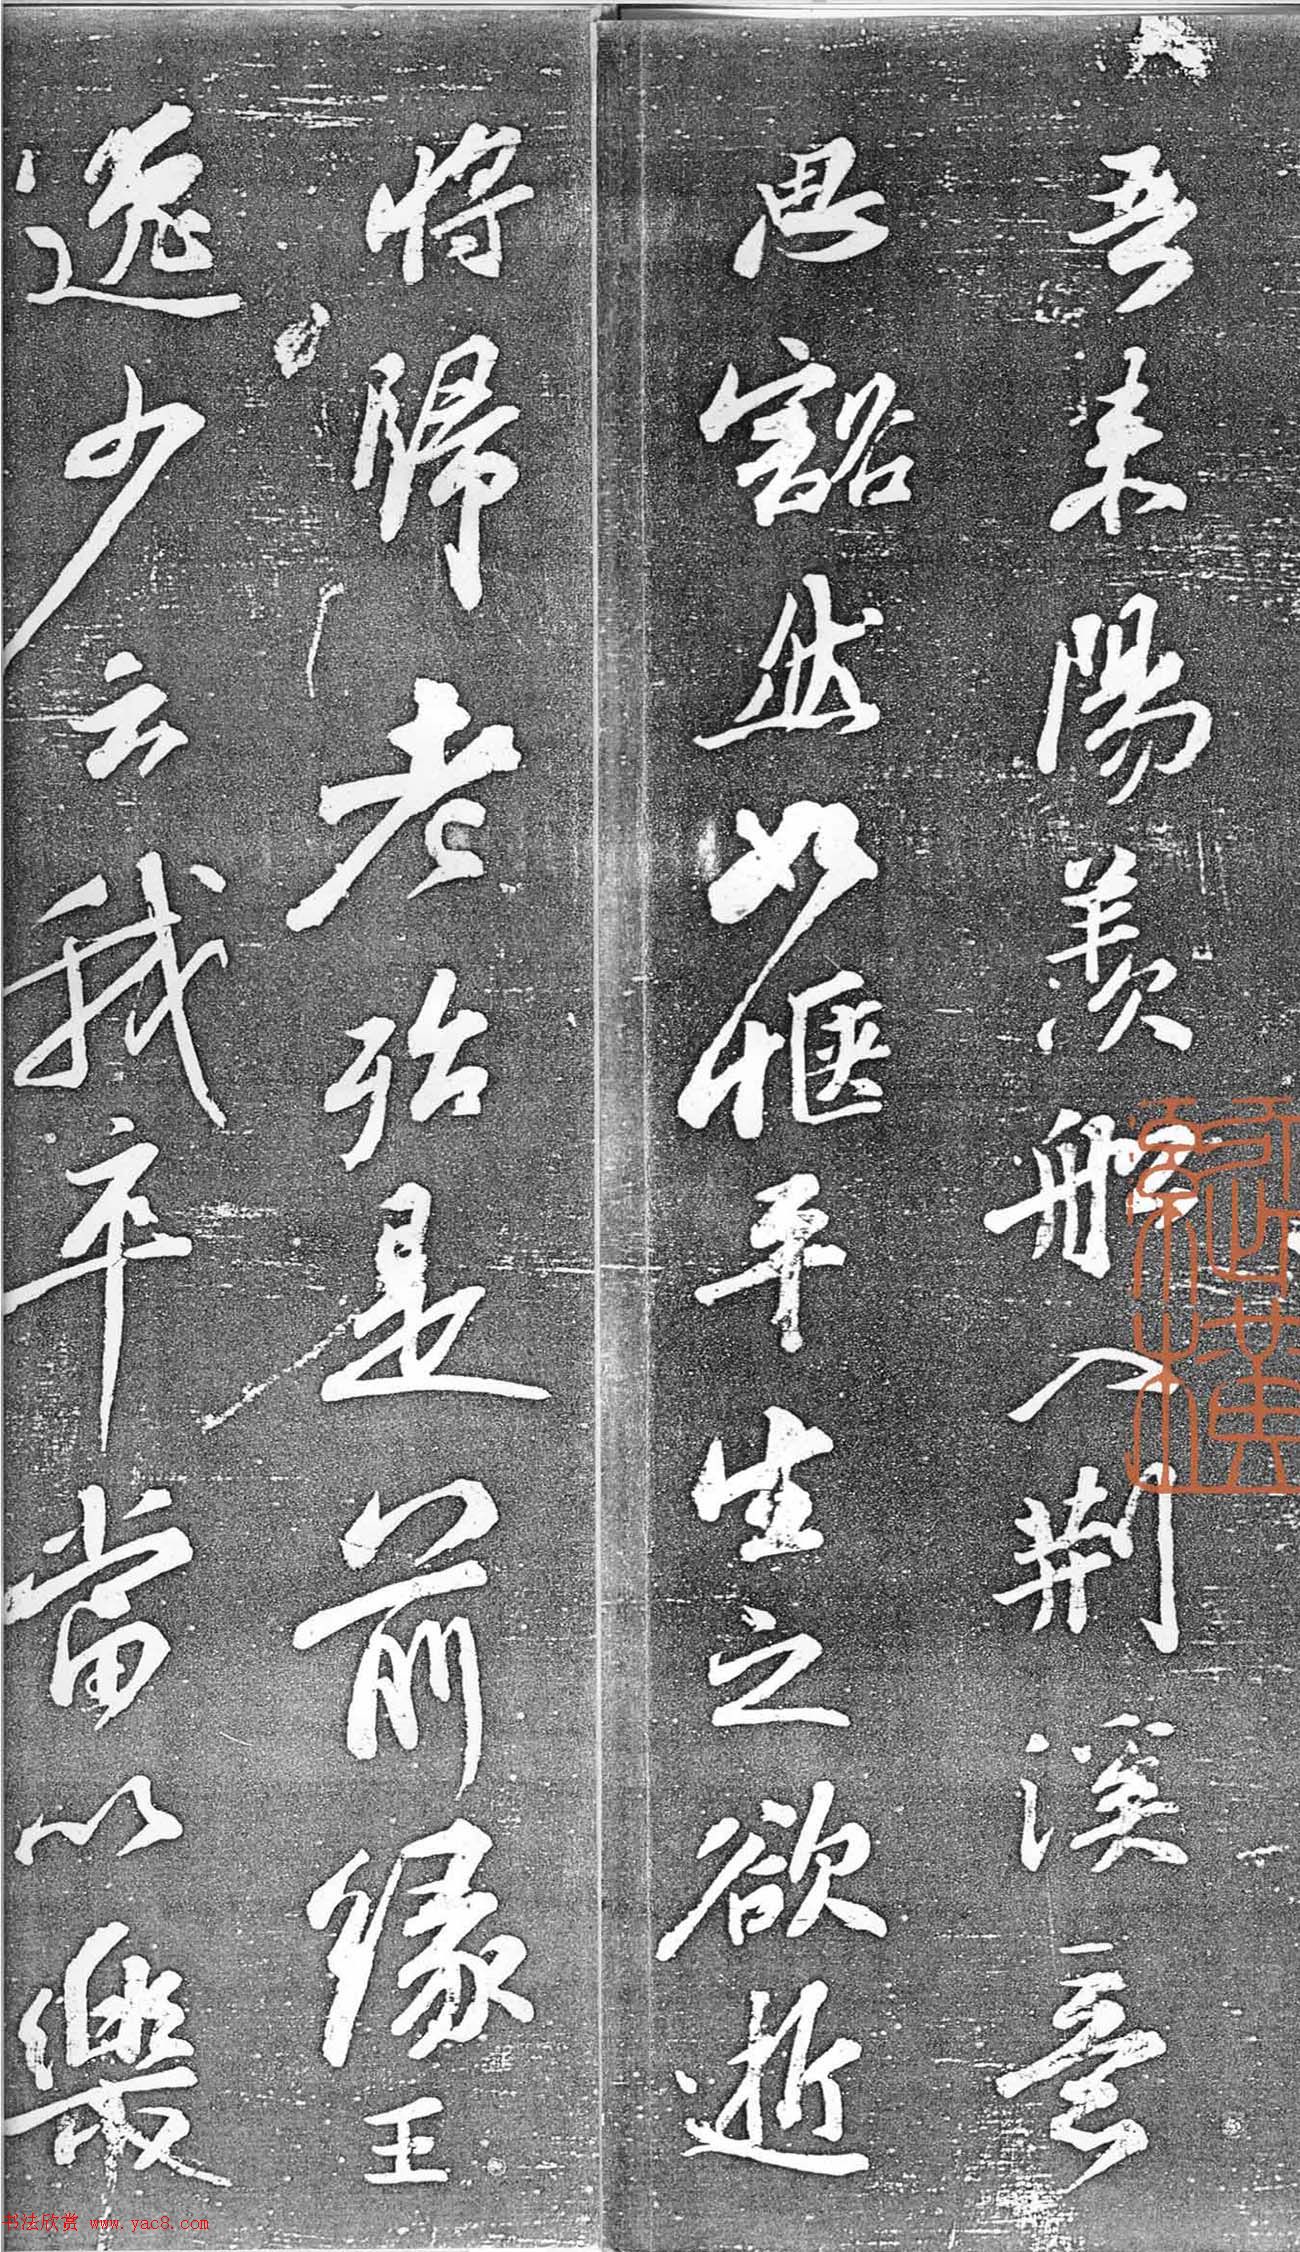 吾来陽羨船入荆溪意
思豁然如愜平生之欲逝
将歸老殆是前緣王
逸少云我卒當以樂
书法欣赏 www.yac8.com